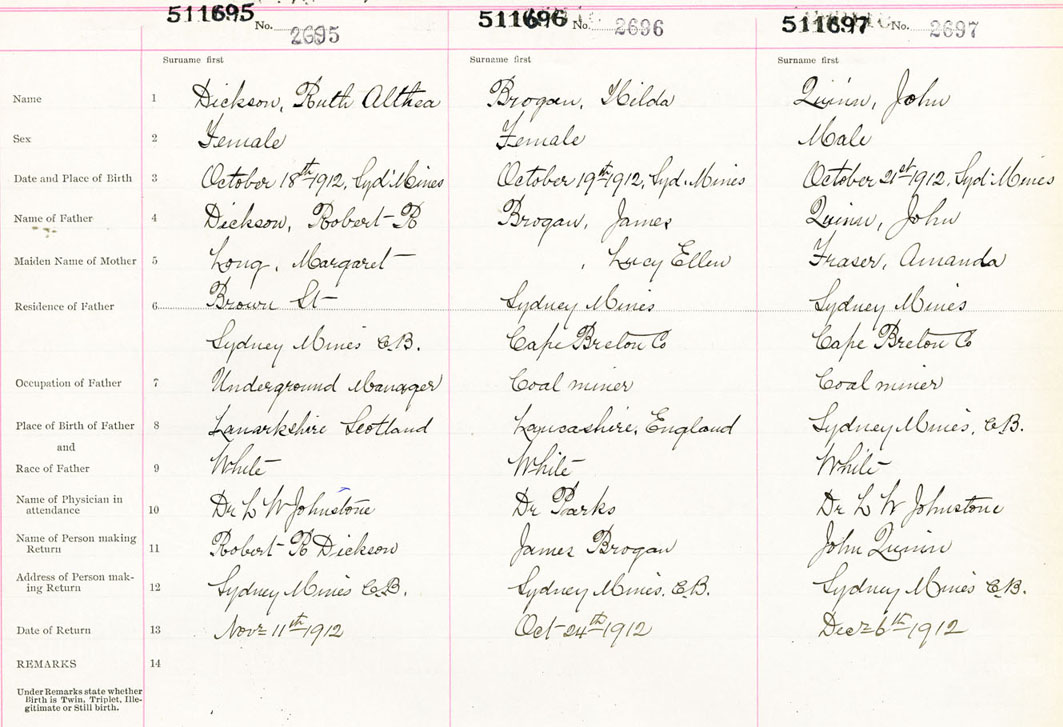 511695 No. 2695 511696 No. 2696 511697 No. 2697
Surname first Surname first Surname first
Name 1 Dickson, Ruth Althea Brogan, Hilda Quinn, John
Sex 2 Female Female Male
Date and Place of Birth 3 October 18th 1912, Syd. Mines October 19th 1912, Syd. Mines October 21st 1912, Syd. Mines
Name of Father 4 Dickson, Robert R Brogan, James Quinn, John
Maiden Name of Mother 5 Long, Margaret , Lucy Ellen Fraser, Amanda
Residence of Father 6 Brown St Sydney Mines Sydney Mines
Sydney Mines C.B. Cape Breton Co Cape Breton Co
Occupation of Father 7 Underground Manager Coal miner Coal miner
Place of Birth of Father 8 Lanarkshire Scotland Lancashire, England Sydney Mines, C.B.
and
Race of Father 9 White White White
Name of Physician in
attendance 10 Dr L W Johnstone Dr Parks Dr L W Johnstone
Name of Person making
Return 11 Robert R Dickson James Brogan John Quinn
Address of Person mak-
ing Return 12 Sydney Mines C.B. Sydney Mines, C.B. Sydney Mines C.B.
Date of Return 13 Nov 11th 1912 Oct 24th 1912 Dec 6th 1912
REMARKS 14
Under Remarks state whether
Birth is Twin, Triplet, Ille-
gitimate or Still birth.